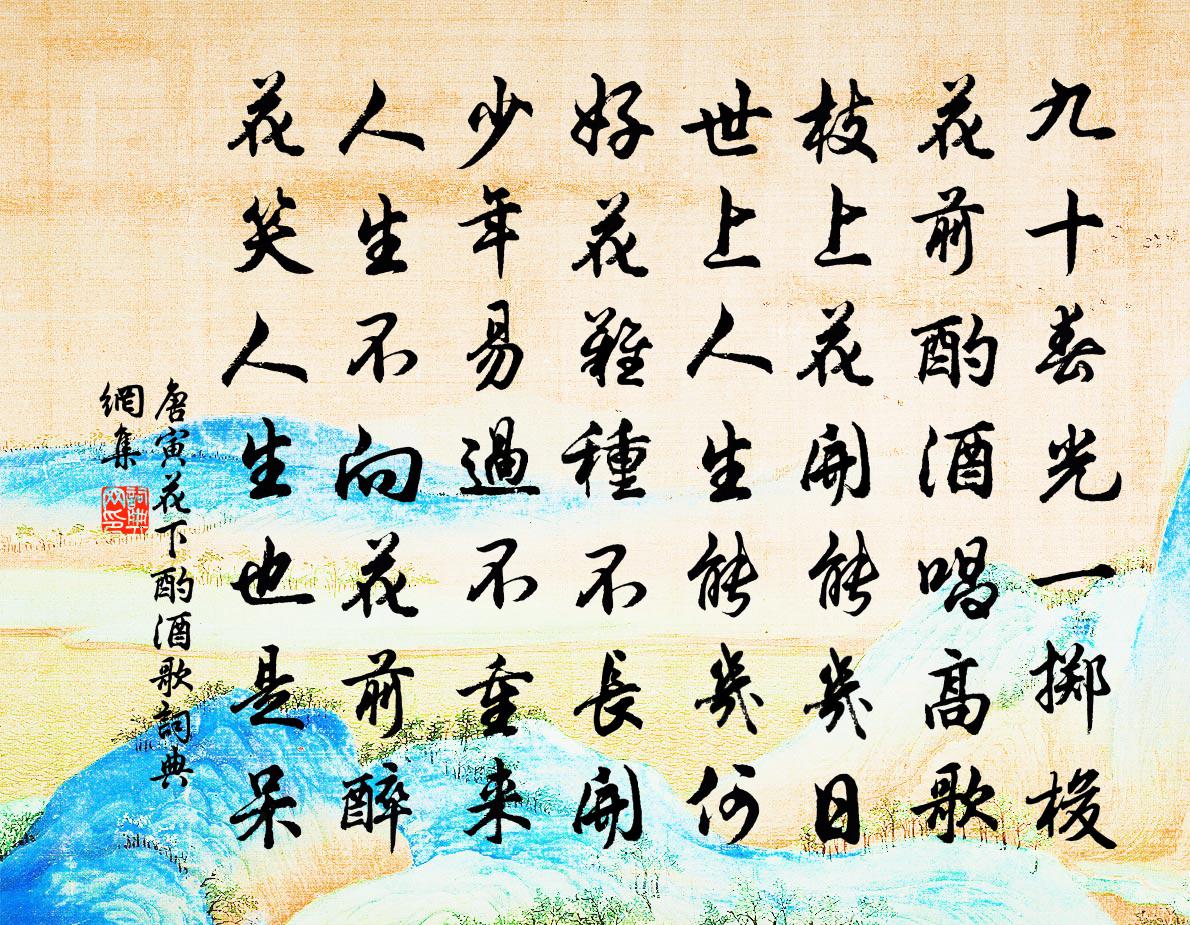 九十春光一擲梭
花前酌酒唱高歌
枝上花開能幾日
世上人生能幾何
好花難種不長開
少年易過不重来
人生不向花前醉
花笑人生也是呆
唐寅花下酌酒歌詞典
網集